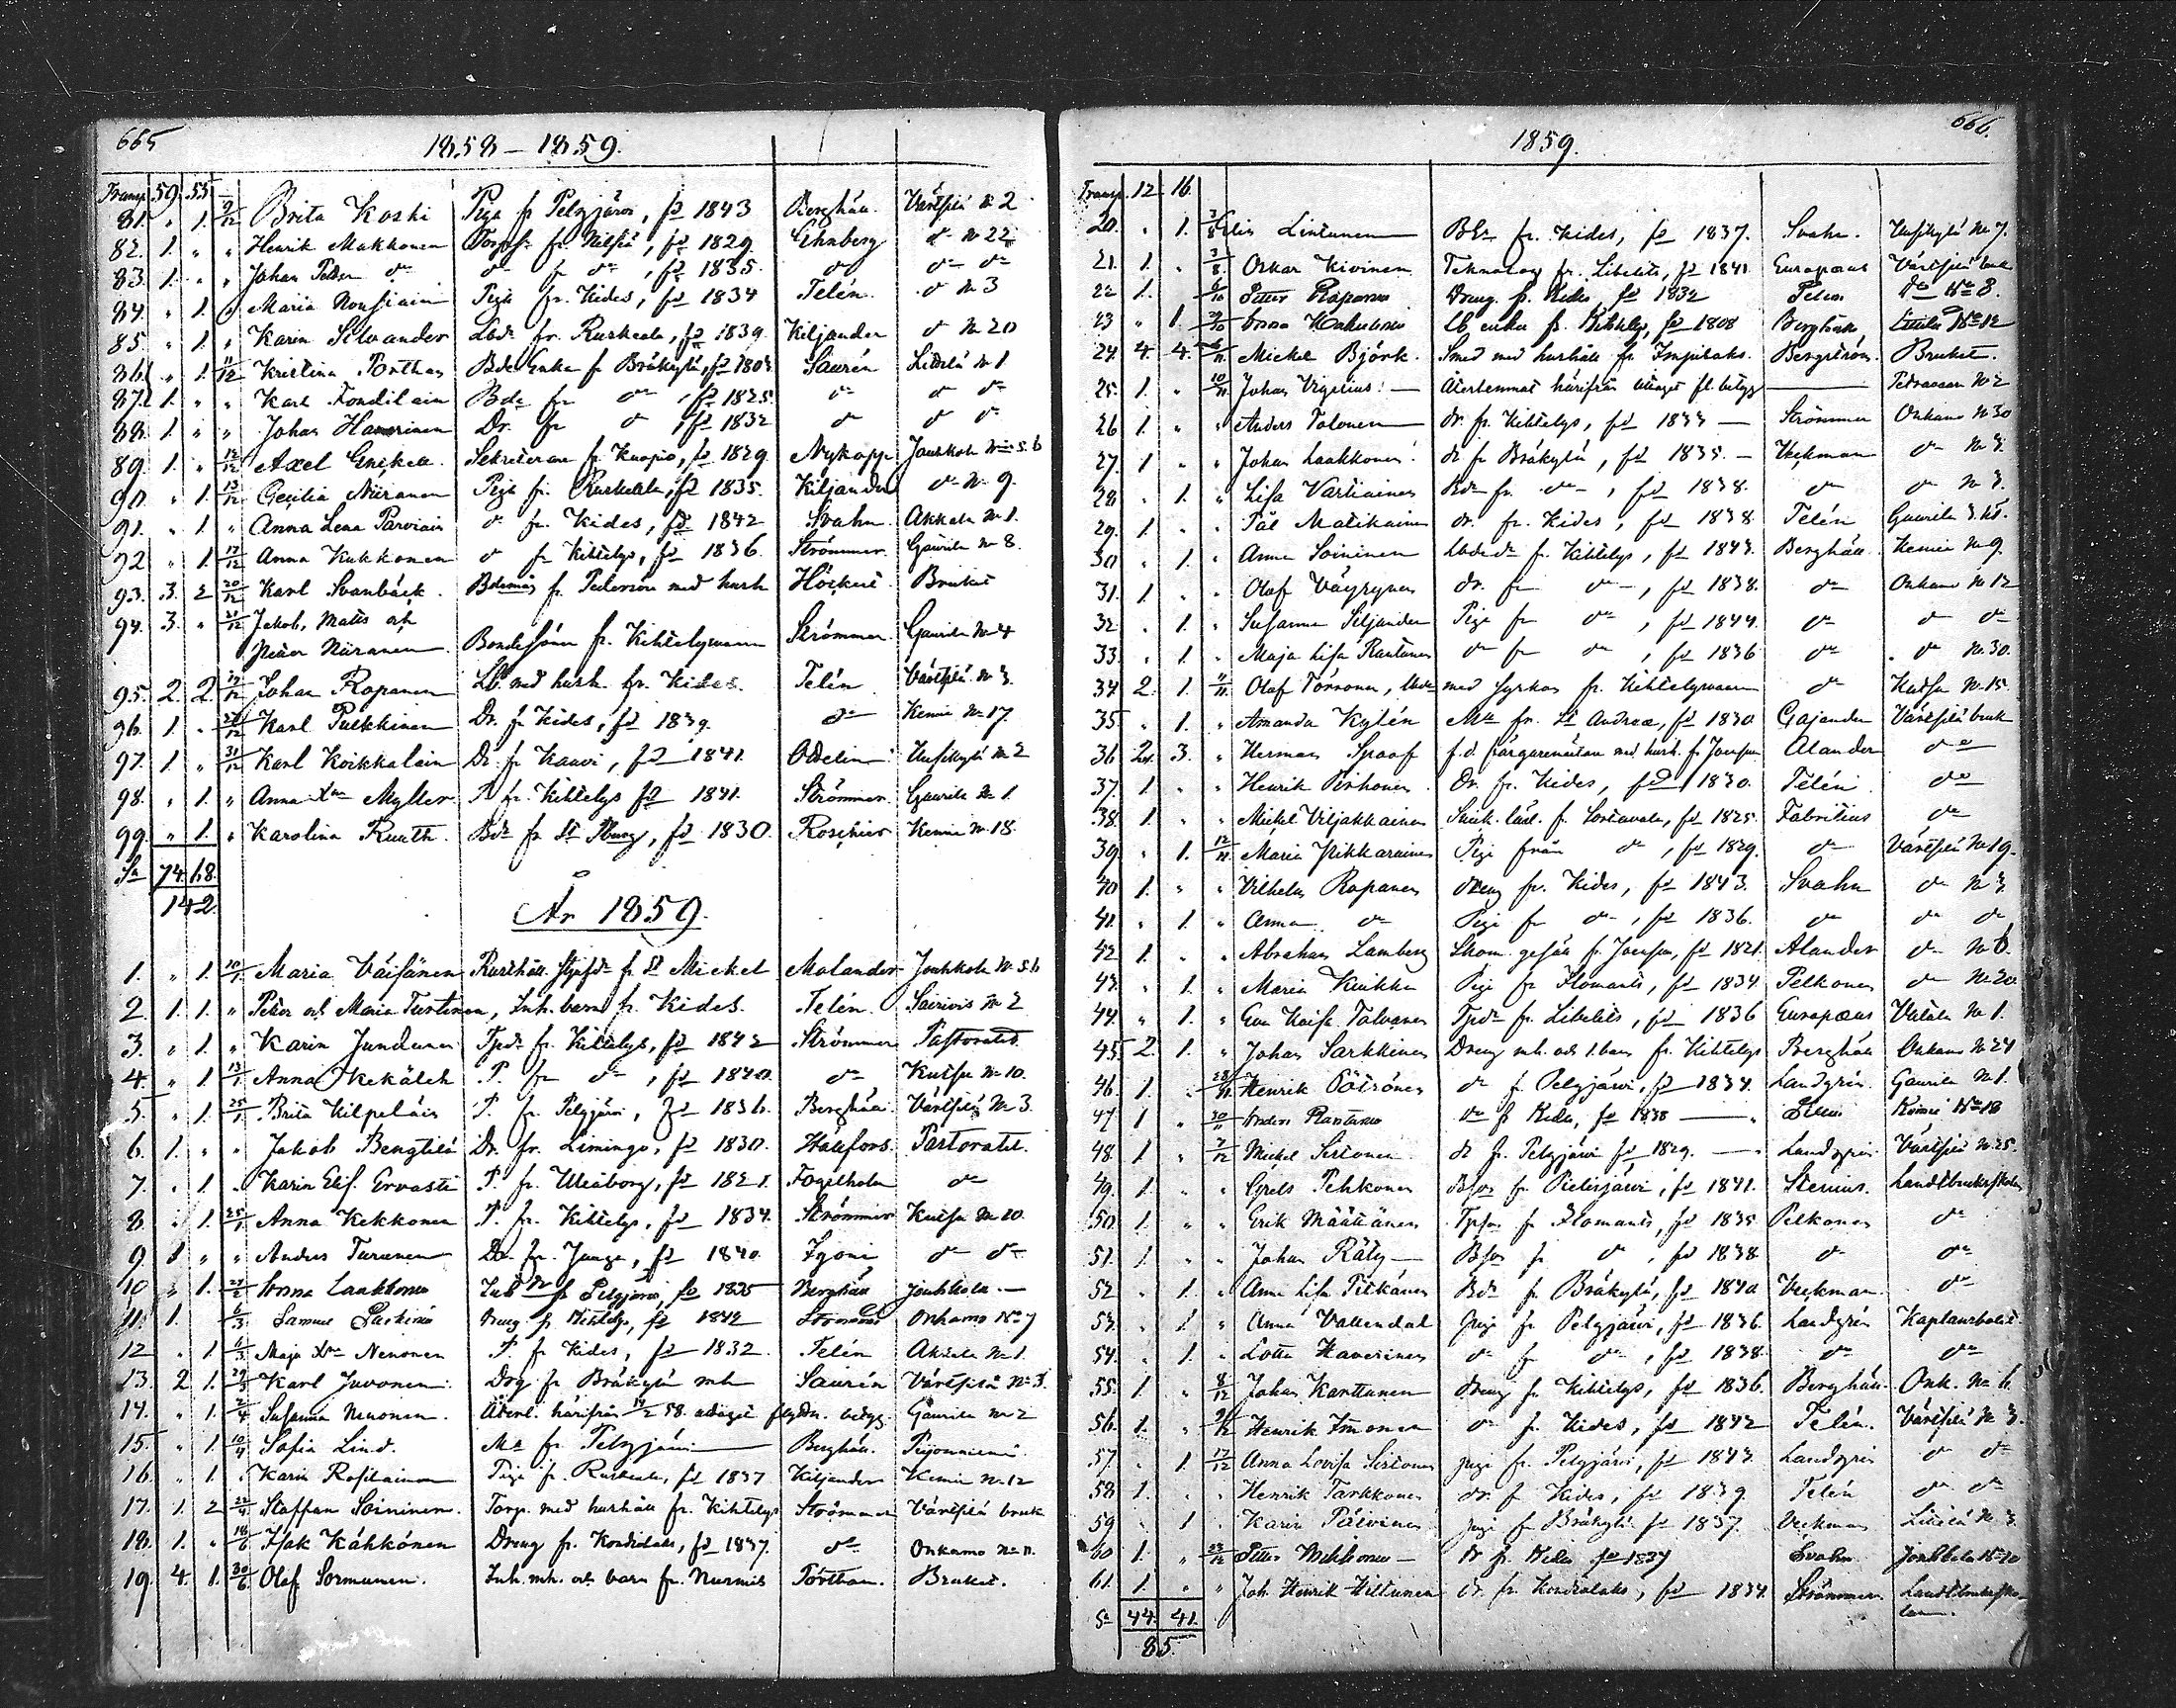 665
1858–1859.
Transp. 59. 55.
81. " 1. 9/12 Brita Koski Piga fr Pelgjärvi, fd 1843 Berghäll. Värtsilä No 2
82. 1. " " Henrik Makkonen Torpfs. fr. Nilsiä, fd 1829. Ehnberg do No 22
83. 1. " " Johan Peder do do fr do, fd 1835. do do do
84. " 1. " Maria Nousiain Piga fr. Kides, fd 1834 Telén. do No 3
85. " 1. " Karin Silvander Lbdr fr. Ruskeala, fd 1839. Kiljander do No 20
86. " 1. 11/12 Kristina Porthan Bde Enka fr Bräkylä, fd 1803. Saurén No 1
87. 1. " " Karl Bdr fr do, fd 1825. do do do
88. 1. " " Johan Dr. fr do, fd 1832 do do do
89. 1. " 12/12 Axel Sekreterare fr Kuopio, fd 1829. Nykopp No 5.6
90. " 1. 13/12 Cecilia Niiranen Piga fr. Ruskeala, fd 1835. Kiljander do No 9.
91. " 1. " Anna Lena Parviain do fr. Kides, fd 1842 Svahn. Akkala No 1.
92 " 1. 17/12 Anna Kukkonen do fr Kihtelys, fd 1836. Strömmer. Gaurila No 8.
93. 3. 2 20/12 Karl Svanbäck. fr. Pedersöre med hush Höckert Bruket
94. 3. " 21/12 Jakob, Matts och
Petter Niiranen. Bondesöner fr. Kihtelysvaara Strömmer. Gaurila No 4
95. 2. 2. Johan Ropanen Lb. med hush. fr. Kides. Telén Värtsilä No 3.
96. 1. " Karl Pulkkinen Dr. fr Kides, fd 1839. do Kemie No 17.
97. 1. " 31/12 Karl Koikkalain Dr. fr Kaavi, fd 1841. Odelin Uusikylä No 2
98. " 1. " Anna Myller P. fr. Kihtelys fd 1841. Strömmer. Gaurila No 1.
99. " 1. " Karolina Ruuth. Bdr fr St Pburg, fd 1830. Roschier Kemie No 18.
Sa 74. 68.
142.
År 1859.
1. " 1. 10/1 Maria Väisänen fr St Michel Molander No 5.6
2. 1. 1. " Petter och Maria Turtinen, Inh. barn fr. Kides. Telén. No 2
3. " 1. " Karin Jundunen Tpdr fr. Kihtelys, fd 1842 Strömmer Pastoratet.
4. " 1. 13/1 Anna Kekäleh P. fr do, fd 1840. do Kutsu No 10.
5. " 1. 25/1 Brita Kilpeläin P. fr. Pelgjärvi, fd 1836. Berghäll. Värtsilä No 3.
6. 1. " " Jakob Bengtilä Dr. fr. Limingo, fd 1830. Hällfors. Pastoratet.
7. " 1. " Karin Elis. Ervasti P. fr. Uleåborg, fd 1821. Fogelholm do
8. " 1. 25/1 Anna Kekkonen P. fr. Kihtelys, fd 1834. Strömmer Kutsu No 10.
9. 1 " " Anders Turunen Dr. fr. Juuga, fd 1840. Igoni do do
10 " 1. Anna Laukkonen fr Pelgjärvi, fd 1835 Berghäll Jouhkola.
11. 1. 6/3 Samuel Dreng fr Kihtelys, fd 1842 Strömmer Onkamo No 7
12 " 1 6/3 Maja Nenonen P. fr Kides, fd 1832. Telén Akkala No 1.
13. 2 1. Karl Juvonen. Drg fr Bräkylä mh Saurén Värtsilä No 3.
14. " 1. 2/4 Susanna Nenonen. Återl. härifrån 58. uttaget flyttn. betyg. Gaurila No 2
15. " 1. 10/4 Sofia Lind. fr. Pelgjärvi Berghäll.
16. " 1. " Karin Rossilainen Piga fr. Ruskeala, fd 1837 Kiljander Kemie No 12
17. 1. 2 22/4 Staffan Soininen. Torp. med hushåll fr. Kihtelys Strömmer Värtsilä bruk
18. 1. " 18/6 Isak Kähkönen Dreng fr. Kontiolaks, fd 1837. do Onkamo No 11.
19. 4. 1. 30/6 Olof Sormunen. Inh. mh. och barn fr. Nurmis Porthan. Bruket.
666.
1859.
Transp. 12. 16.
20. " 1. 3/8 Elis Lintunen Bdr fr. Kides, fd 1837. Svahn. Uusikylä No 7.
21. 1. " 3/8 Oskar Kivinen Teknolog fr. Libelits, fd 1841. Europaeus Värtsilä bruk
22 1. 6/10 Petter Ropanen Dreng. fr. Kides, fd 1832 Telén do No 8.
23 " 1. Anna Lb enka fr. Kihtelys, fd 1808 Berghäll, No 12
24. 4. 4. Mickel Björk. Smed med hushåll fr. Impilaks. Bergström. Bruket.
25. 1. " 10/11 Johan Vigelius. — Återkommat härifrån uttaget fl. betyg — Petravaara No 2
26 1. " " Anders Tolonen dr. fr. Kihtelys, fd 1833 — Strömmer Onkamo No 30
27. 1 " " Johan Laakkonen. dr fr Bräkylä, fd 1835. — Veckman do No 3.
28. " 1. " Lisa Vartiainen Bdr fr. do, fd 1838. do do No 3.
29. 1. " " Pål Matikainen dr. fr. Kides, fd 1838. Telén Gaurila
30. " 1. " Anna Soininen fr Kihtelys, fd 1843. Berghäll. Kemie No 9.
31. 1. " " Olof Väyrynen dr. fr do, fd 1838. do Onkamo No 12
32. " 1. " Susanna Siljander Piga fr do, fd 1844. do do do
33. " 1. " Maja Lisa Rantanen do fr do, fd 1836 do do No 30.
34. 2. 1. 11/11 Olof Törrönen, med syskon fr. Kihtelysvaara do Kutsu No 15.
35. " 1. " Amanda Kylén Mll fr. St Andreæ, fd 1830. Gajander Värtsilä bruk
36. 2. 3. " Herman Spoof f.d. med hush. fr. Joensuu Alander do
37. 1 " " Henrik Pirhonen. Dr. fr. Kides, fd 1830. Telén do
38. 1 " " Mickel Viljakkainen fr. Sortavala, fd 1825. Fabritius do
39. " 1. 12/11 Maria Pikkarainen Piga från do, fd 1829. do Värtsilä No 19.
40 1. " " Vilhelm Ropanen dreng fr. Kides, fd 1843. Svahn do No 3.
41. " 1. " Anna do Piga fr do, fd 1836. do do do
42 1. " " Abraham Lamberg Skom. gesäll fr. Joensuu, fd 1821. Alander do No 6.
43. " 1. " Maria Kuikka Piga fr Ilomants, fd 1834. Pelkonen do No 20
44. " 1. " Eva Kaisa Talvanen Tpdr fr. Libelits, fd 1836 Europaeus No 1.
45. 2. 1. " Johan Sarkkinen Dreng mh. och 1. barn fr. Kihtelys Berghäll Onkamo No 24
46. 1. " Henrik Pötrönen do fr Pelgjärvi, fd 1834. Landgrén Gaurila No 1.
47 1 " 30/11 Anders Rantanen do fr Kides, fd 1838 — Telén Kemie No 18
48. 1 " 7/12 Mickel Sirtonen do fr. Pelgjärvi fd 1829. — Landgrén. Värtsilä No 25.
49. 1. " " Grels Pehkonen Bson fr. Pielisjärvi, fd 1841. Stenius. Landtbruksskolan
50. 1 " " Erik Määttänen Tpson fr Ilomants, fd 1835 Pelkonen do
51. 1. " " Johan Räty — Bson fr do, fd 1838 do do
52. " 1. " Anna Lisa Pitkänen Bdr fr. Bräkylä, fd 1840 Veckman. do
53. " 1. " Anna Vallendal Piga fr Pelgjärvi, fd 1836. Landgrén Kaplansbolet
54. " 1. " Lotta Haverinen do fr do, fd 1838. do do
55. 1. " 8/12 Johan Karttunen dreng fr Kihtelys, fd 1836. Berghäll. Onk. No 6.
56. 1. " 9/12 Henrik Immonen do fr. Kides, fd 1842 Telén. Värtsilä No 3.
57. " 1. 17/12 Anna Lovisa Sirtonen piga fr. Pelgjärvi, fd 1843. Landgrén do do
58. 1. " " Henrik Tarkkonen dr. fr Kides, fd 1839. Telén do do
59. " 1 " Karin Päivinen piga fr Bräkylä fd 1837. Veckman No 3.
60 1. " 23/12 Petter Mikkonen — dr fr. Kides fd 1834 Svahn. Jouhkola No 10
61. 1. " " Joh. Henrik Hiltunen dr. fr. Kontiolaks, fd 1834. Strömmer. Landtbrukssko-
lan.
Sa 44. 41.
85.